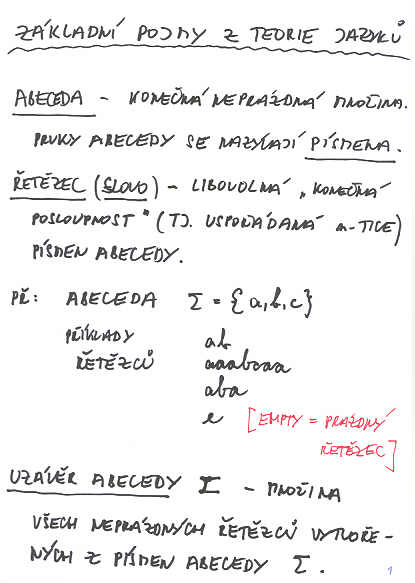 ZÁKLADNÍ POJMY Z TEORIE JAZYKŮ
ABECEDA – KONEČNÁ NEPRÁZDNÁ MNOŽINA.
PRVKY ABECEDY SE NAZÝVAJÍ PÍSMENA.
ŘETĚZEC (SLOVO) – LIBOVOLNÁ „KONEČNÁ
POSLOUPNOST" (TJ. USPOŘÁDANÁ n-TICE)
PÍSMEN ABECEDY.
PŘ: ABECEDA Σ = {a, b, c}
PŘÍKLADY ab
ŘETĚZCŮ aaabcaa
aba
e [EMPTY = PRÁZDNÝ
ŘETĚZEC]
UZÁVĚR ABECEDY Σ – MNOŽINA
VŠECH NEPRÁZDNÝCH ŘETĚZCŮ VYTVOŘE-
NÝCH Z PÍSMEN ABECEDY Σ.
1